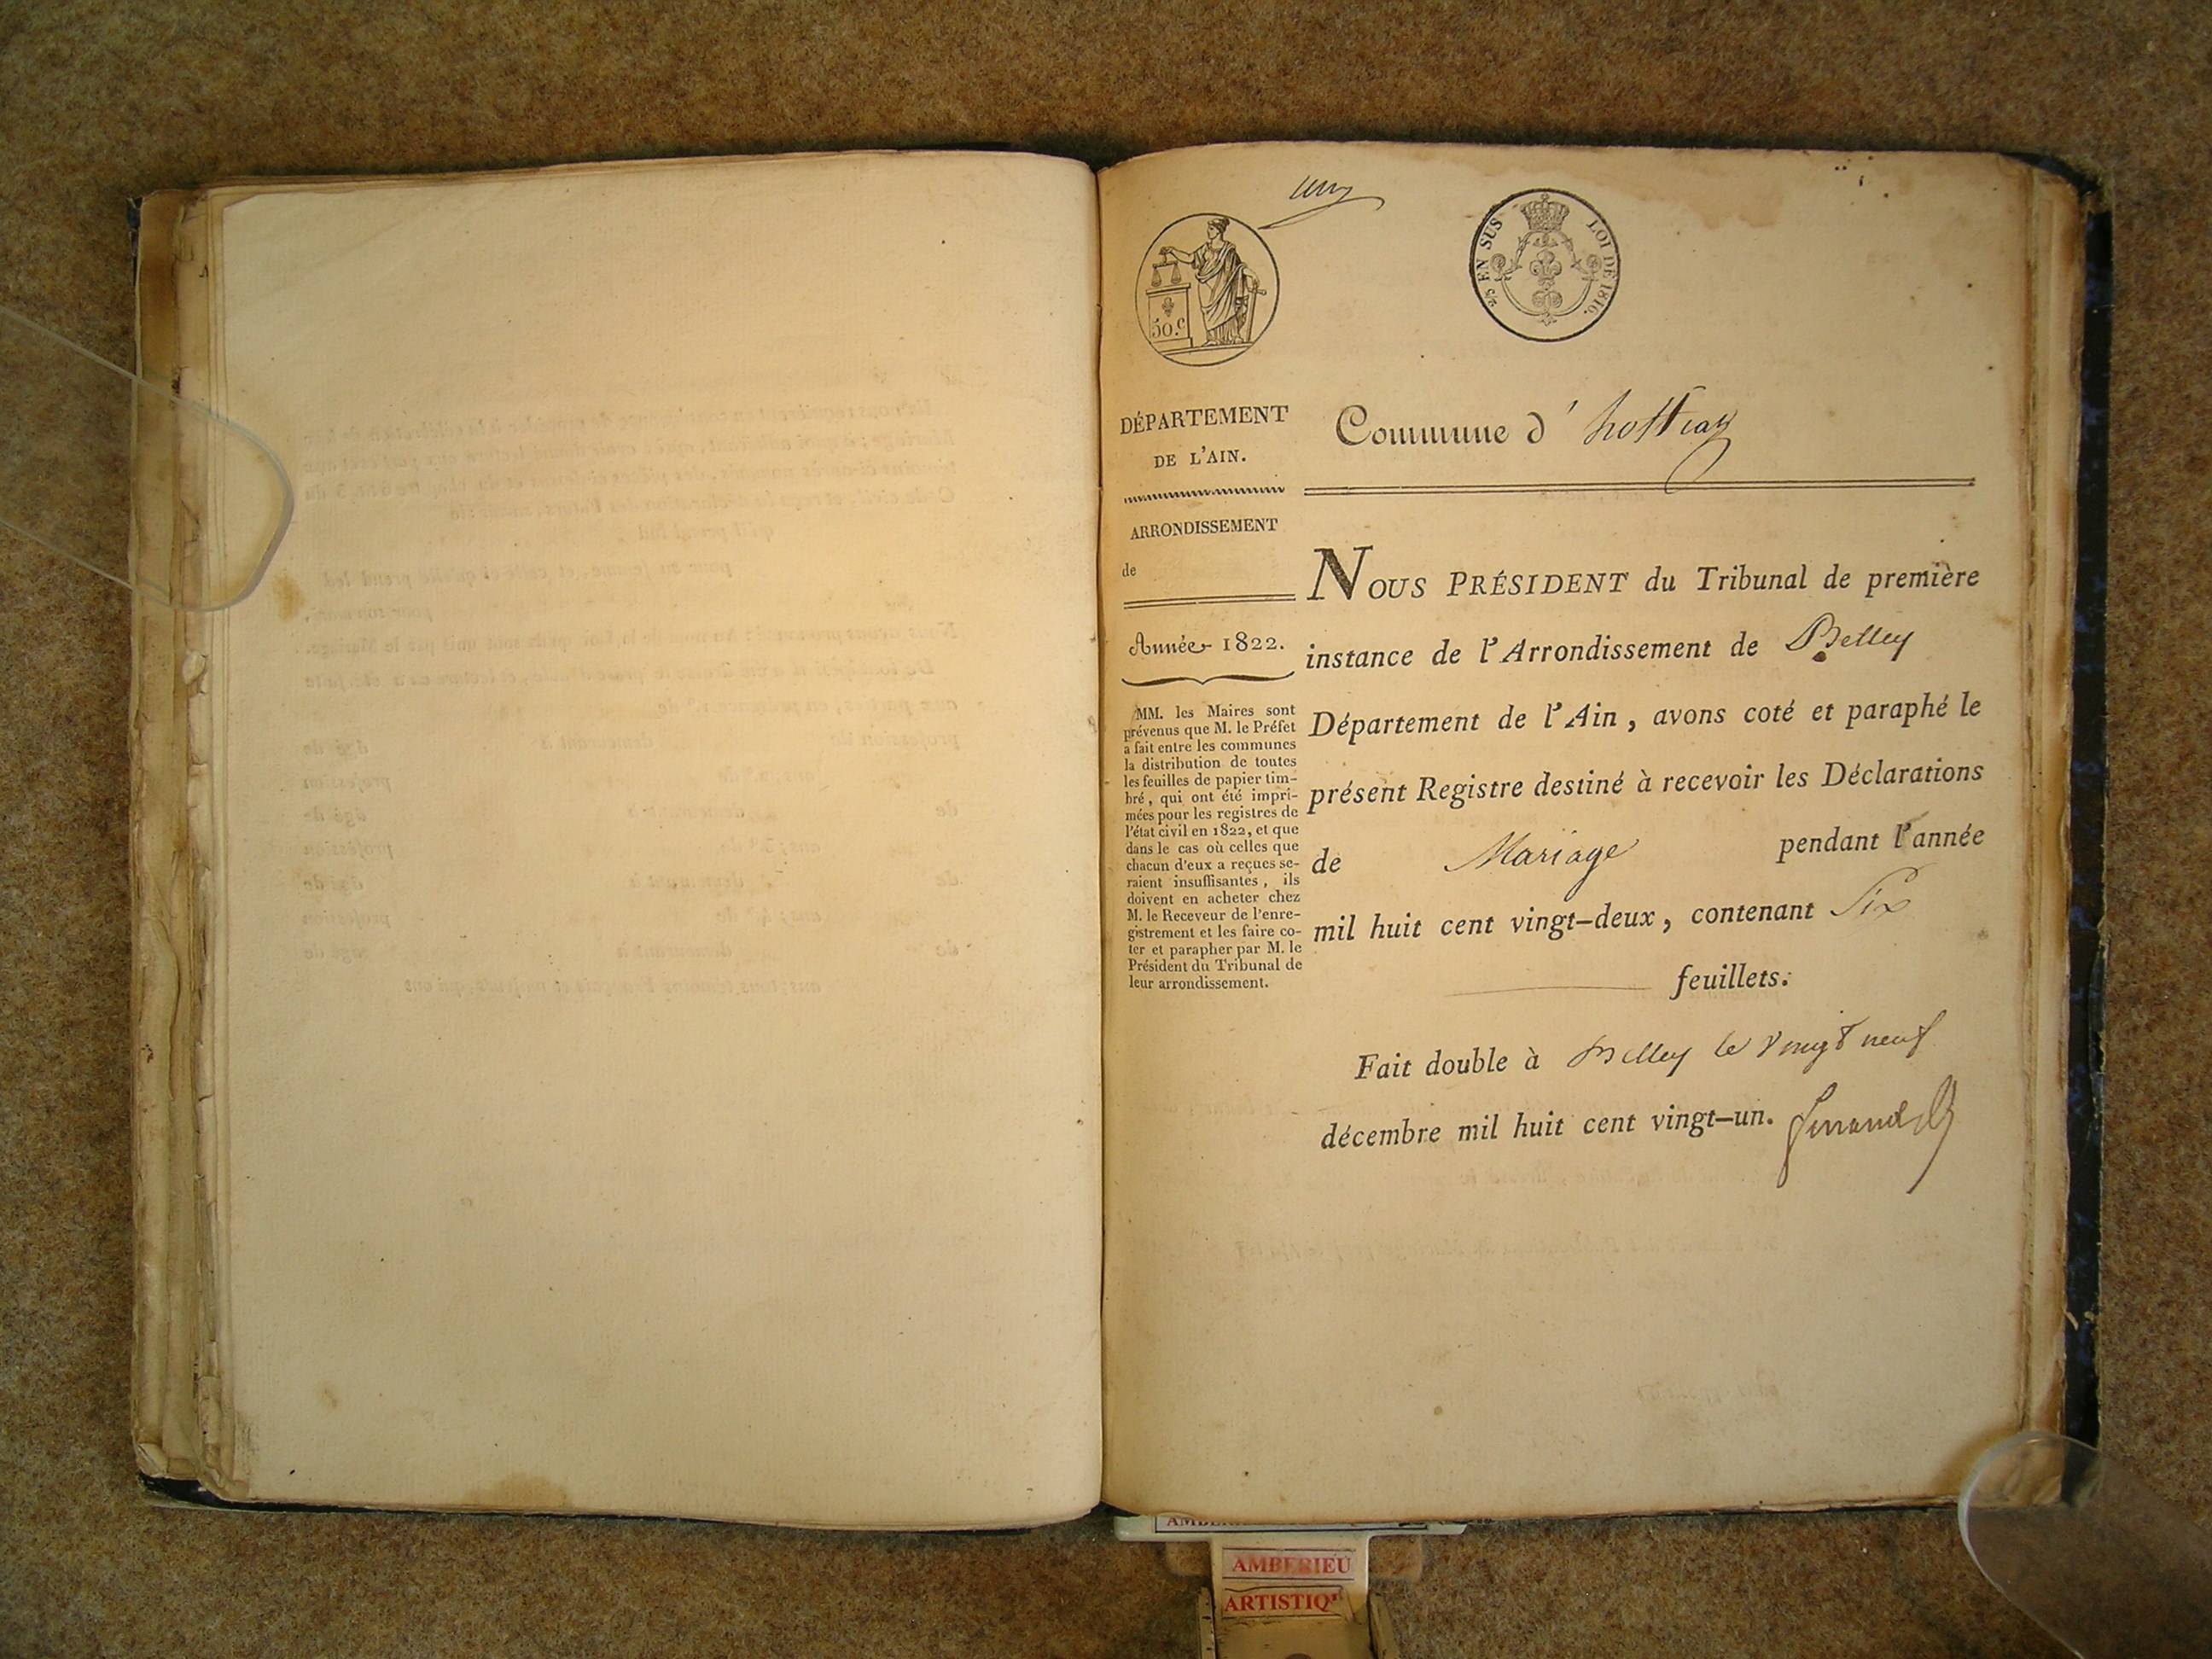 un
50.c
c/s EN SUS LOI DE 1816.
DÉPARTEMENT
DE L'AIN.
ARRONDISSEMENT
de
Année 1822.
MM. les Maires sont
prévenus que M. le Préfet
a fait entre les communes
la distribution de toutes
les feuilles de papier tim-
bré, qui ont été impri-
mées pour les registres de
l'état civil en 1822, et que
dans le cas où celles que
chacun d'eux a reçues se-
raient insuffisantes, ils
doivent en acheter chez
M. le Receveur de l'enre-
gistrement et les faire co-
ter et parapher par M. le
Président du Tribunal de
leur arrondissement.
Commune d' hostiaz
NOUS PRÉSIDENT du Tribunal de première
instance de l'Arrondissement de Belley
Département de l'Ain, avons coté et paraphé le
présent Registre destiné à recevoir les Déclarations
de Mariage pendant l'année
mil huit cent vingt-deux, contenant Six
feuillets.
Fait double à Belley le vingt neuf
décembre mil huit cent vingt-un.
AMBERIEU
ARTISTIQ